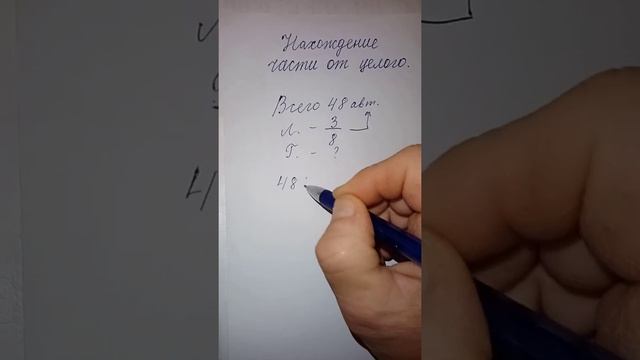 Нахождение
части от целого.
Всего 48 авт.
Л. - 3/8
Г. - ?
48 :